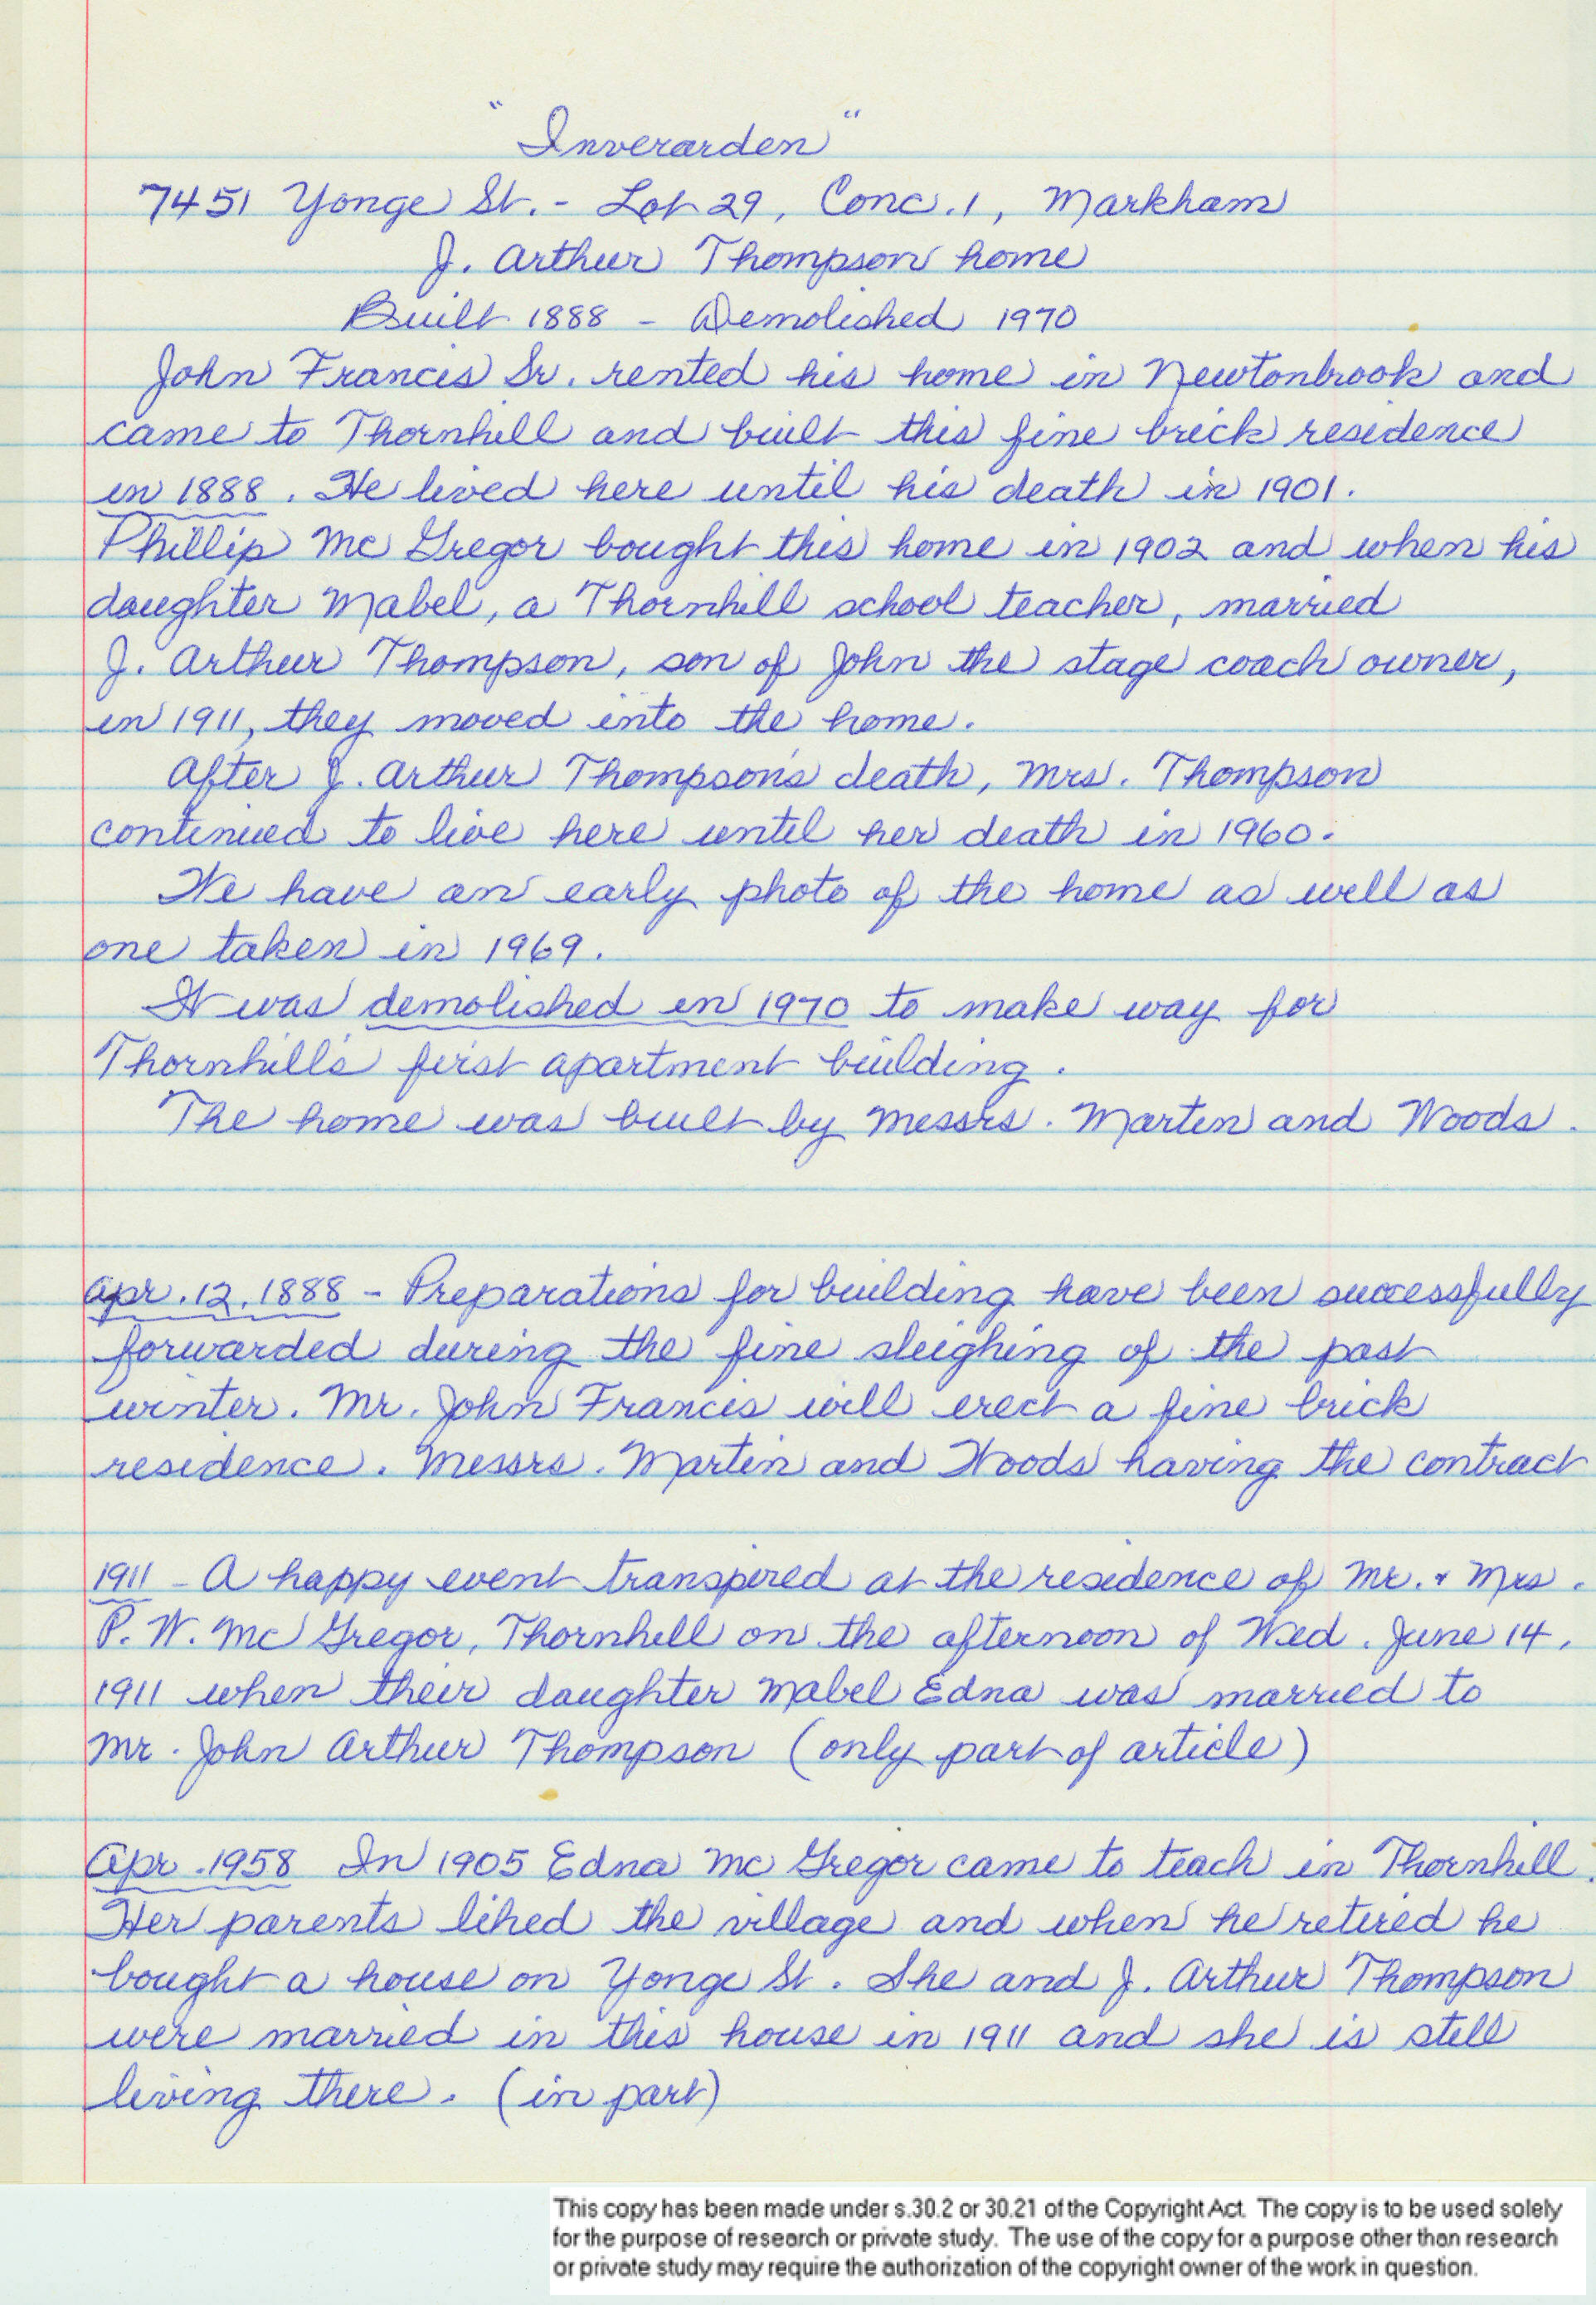 "Inverarden"
7451 Yonge St. - Lot 29, Conc. 1, Markham
J. Arthur Thompson home
Built 1888 - Demolished 1970
John Francis Sr. rented his home in Newtonbrook and
came to Thornhill and built this fine brick residence
in 1888. He lived here until his death in 1901.
Phillip Mc Gregor bought this home in 1902 and when his
daughter Mabel, a Thornhill school teacher, married
J. Arthur Thompson, son of John the stage coach owner,
in 1911, they moved into the home.
After J. Arthur Thompson's death, Mrs. Thompson
continued to live here until her death in 1960.
We have an early photo of the home as well as
one taken in 1969.
It was demolished in 1970 to make way for
Thornhill's first apartment building.
The home was built by Messrs. Martin and Woods.
Apr. 12, 1888 - Preparations for building have been successfully
forwarded during the fine sleighing of the past
winter. Mr. John Francis will erect a fine brick
residence. Messrs. Martin and Woods having the contract
1911 - A happy event transpired at the residence of Mr. & Mrs.
P. W. Mc Gregor, Thornhill on the afternoon of Wed. June 14,
1911 when their daughter Mabel Edna was married to
Mr. John Arthur Thompson (only part of article)
Apr. 1958 In 1905 Edna Mc Gregor came to teach in Thornhill.
Her parents liked the village and when he retired he
bought a house on Yonge St. She and J. Arthur Thompson
were married in this house in 1911 and she is still
living there. (in part)
This copy has been made under s.30.2 or 30.21 of the Copyright Act. The copy is to be used solely
for the purpose of research or private study. The use of the copy for a purpose other than research
or private study may require the authorization of the copyright owner of the work in question.